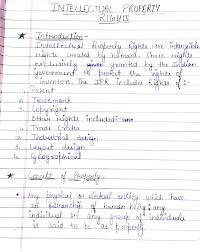 INTELLECTUAL PROPERTY
RIGHTS
★ Introduction -
Intellectual Property Rights are intangible
rights created by humans. These rights
exclusively given granted by the Indian
Government to protect the rights of
inventors. The IPR includes Rights of :-
1. Patent
2. Trademark
3. Copyright
Other rights included:-
4. Trade Secrets
5. Industrial design
6. Layout design
7. Geographical
★ Concept of Property -
• Any physical or virtual entity which have
an ownership of human being, any
individual or any group of individuals
is said to be as property.